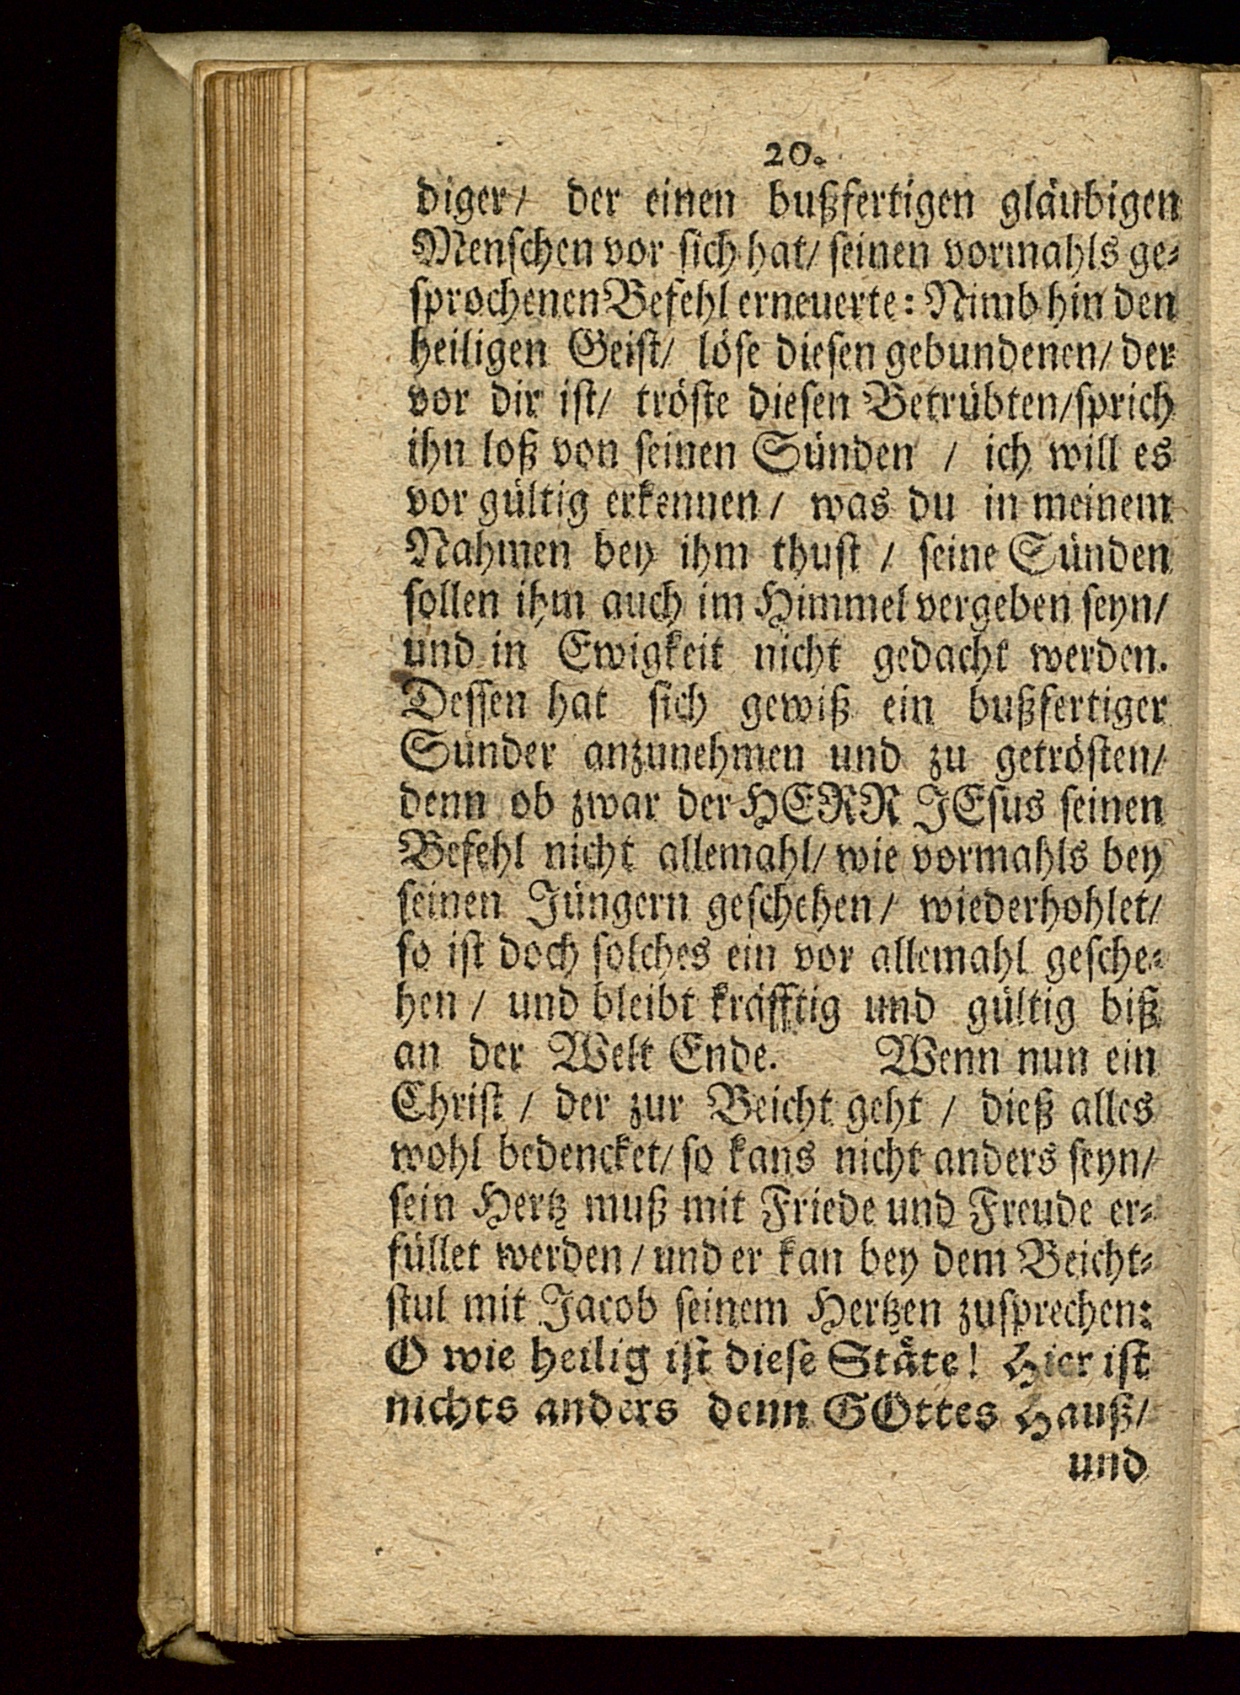 20.
diger/ der einen bußfertigen gläubigen
Menschen vor sich hat/ seinen vormahls ge-
sprochenen Befehl erneuerte: Nimb hin den
heiligen Geist/ löse diesen gebundenen/ der
vor dir ist/ tröste diesen Betrübten/sprich
ihn loß von seinen Sünden / ich will es
vor gültig erkennen / was du in meinem
Nahmen bey ihm thust / seine Sünden
sollen ihm auch im Himmel vergeben seyn/
und in Ewigkeit nicht gedacht werden.
Dessen hat sich gewiß ein bußfertiger
Sünder anzunehmen und zu getrösten/
denn ob zwar der HERR JEsus seinen
Befehl nicht allemahl/ wie vormahls bey
seinen Jüngern geschehen / wiederhohlet/
so ist doch solches ein vor allemahl gesche-
hen / und bleibt kräfftig und gültig biß
an der Welt Ende. Wenn nun ein
Christ / der zur Beicht geht / dieß alles
wohl bedencket/ so kans nicht anders seyn/
sein Hertz muß mit Friede und Freude er-
füllet werden / und er kan bey dem Beicht-
stul mit Jacob seinem Hertzen zusprechen:
O wie heilig ist diese Stäte! Hier ist
nichts anders denn GOttes Hauß/
und